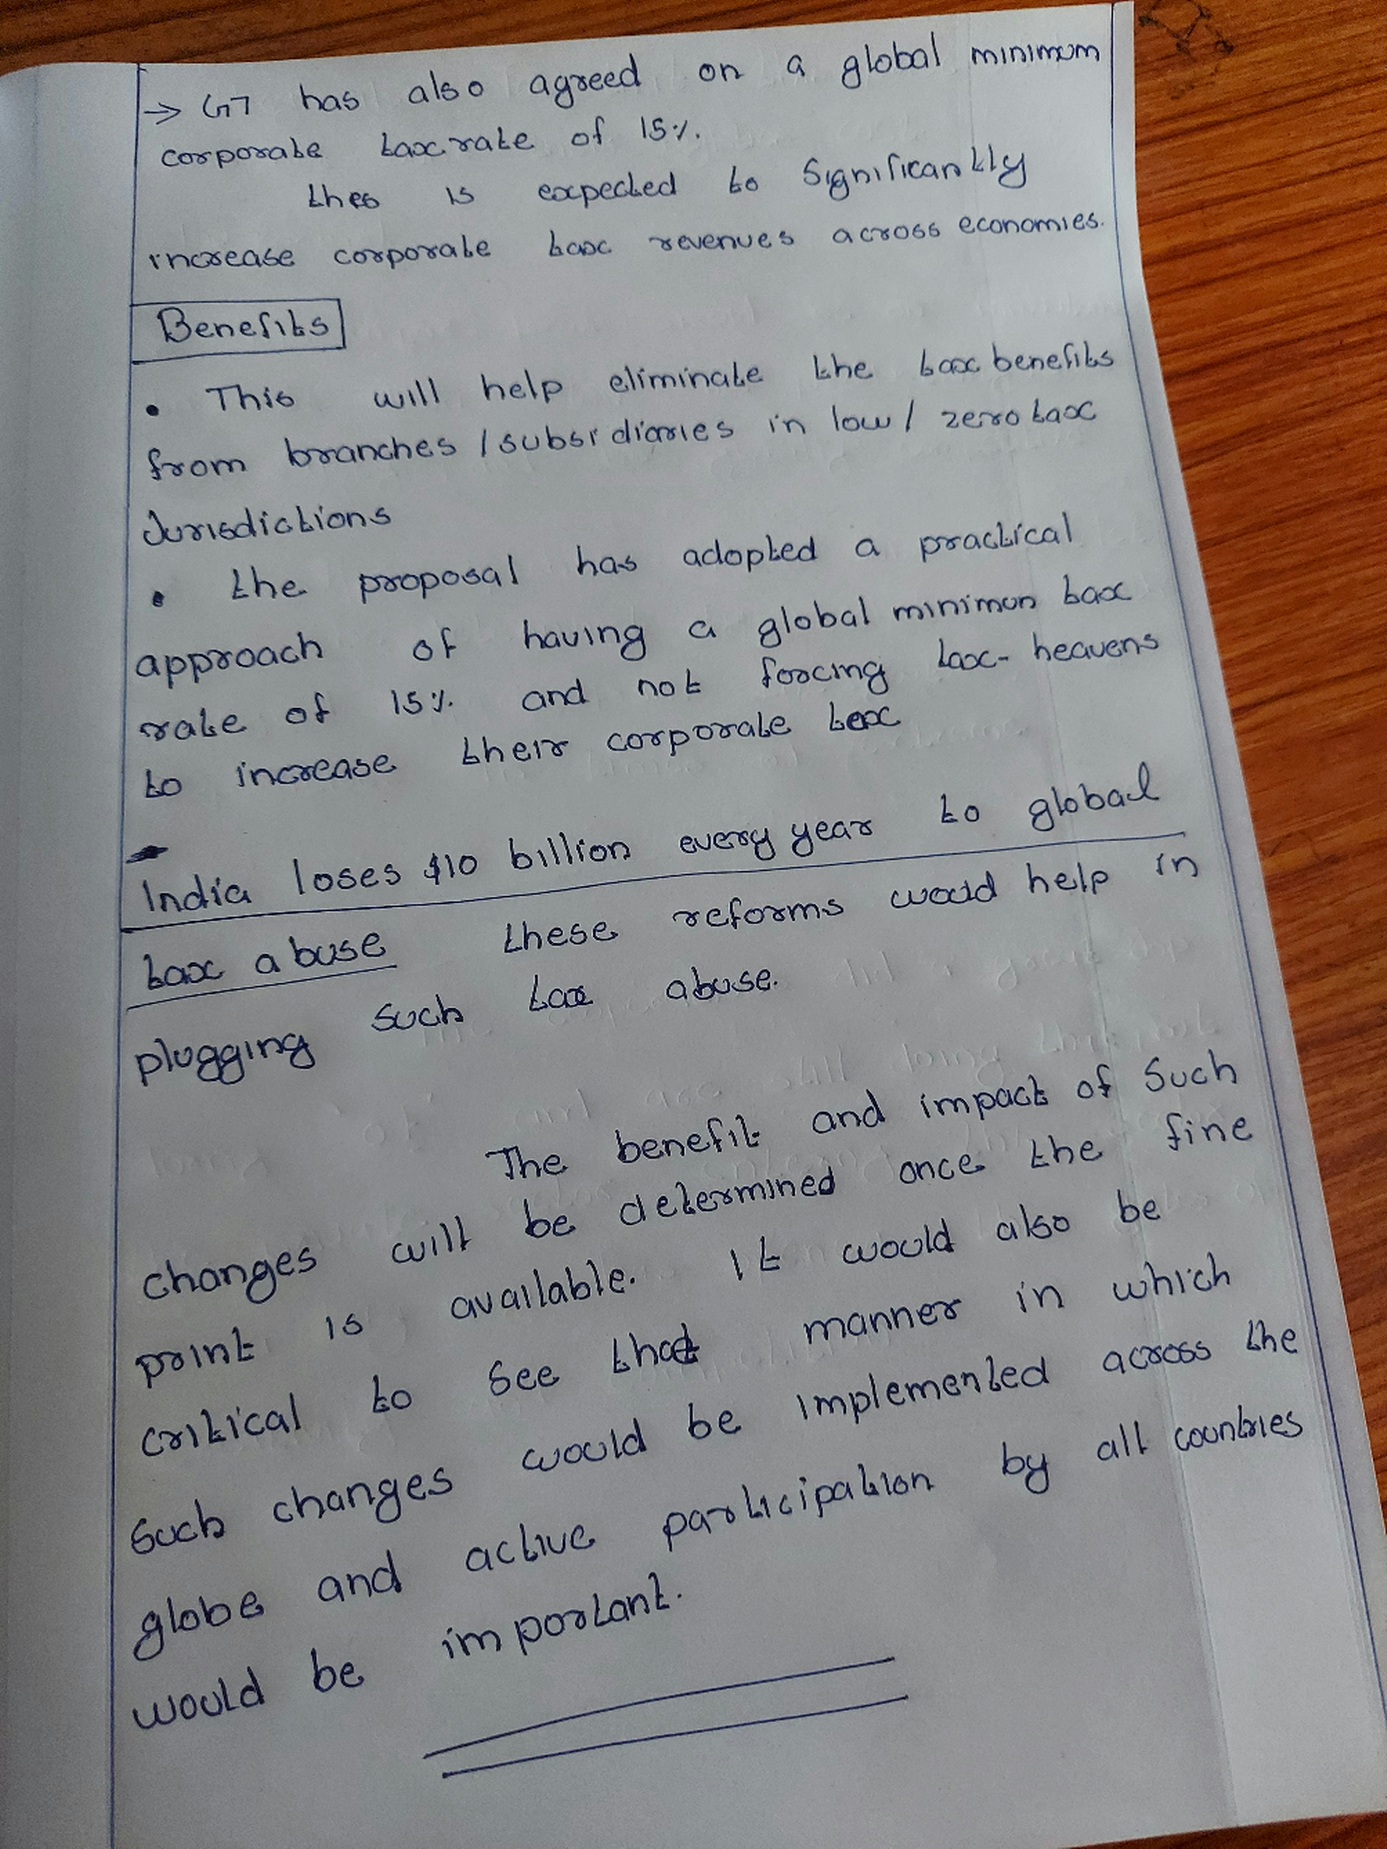 → G7 has also agreed on a global minimum
corporate tax rate of 15%.
thes is expected to significantly
increase corporate tax revenues across economies.
Benefits
• This will help eliminate the tax benefits
from branches / subsidiaries in low / zero tax
Jurisdictions
• the proposal has adopted a practical
approach of having a global minimun tax
rate of 15% and not forcing tax-heavens
to increase their corporate tax
India loses $10 billion every year to global
tax abuse these reforms would help in
plugging such tax abuse.
The benefit and impact of such
changes will be determined once the fine
print is available. It would also be
critical to see that manner in which
such changes would be implemented across the
globe and active participation by all countries
would be important.